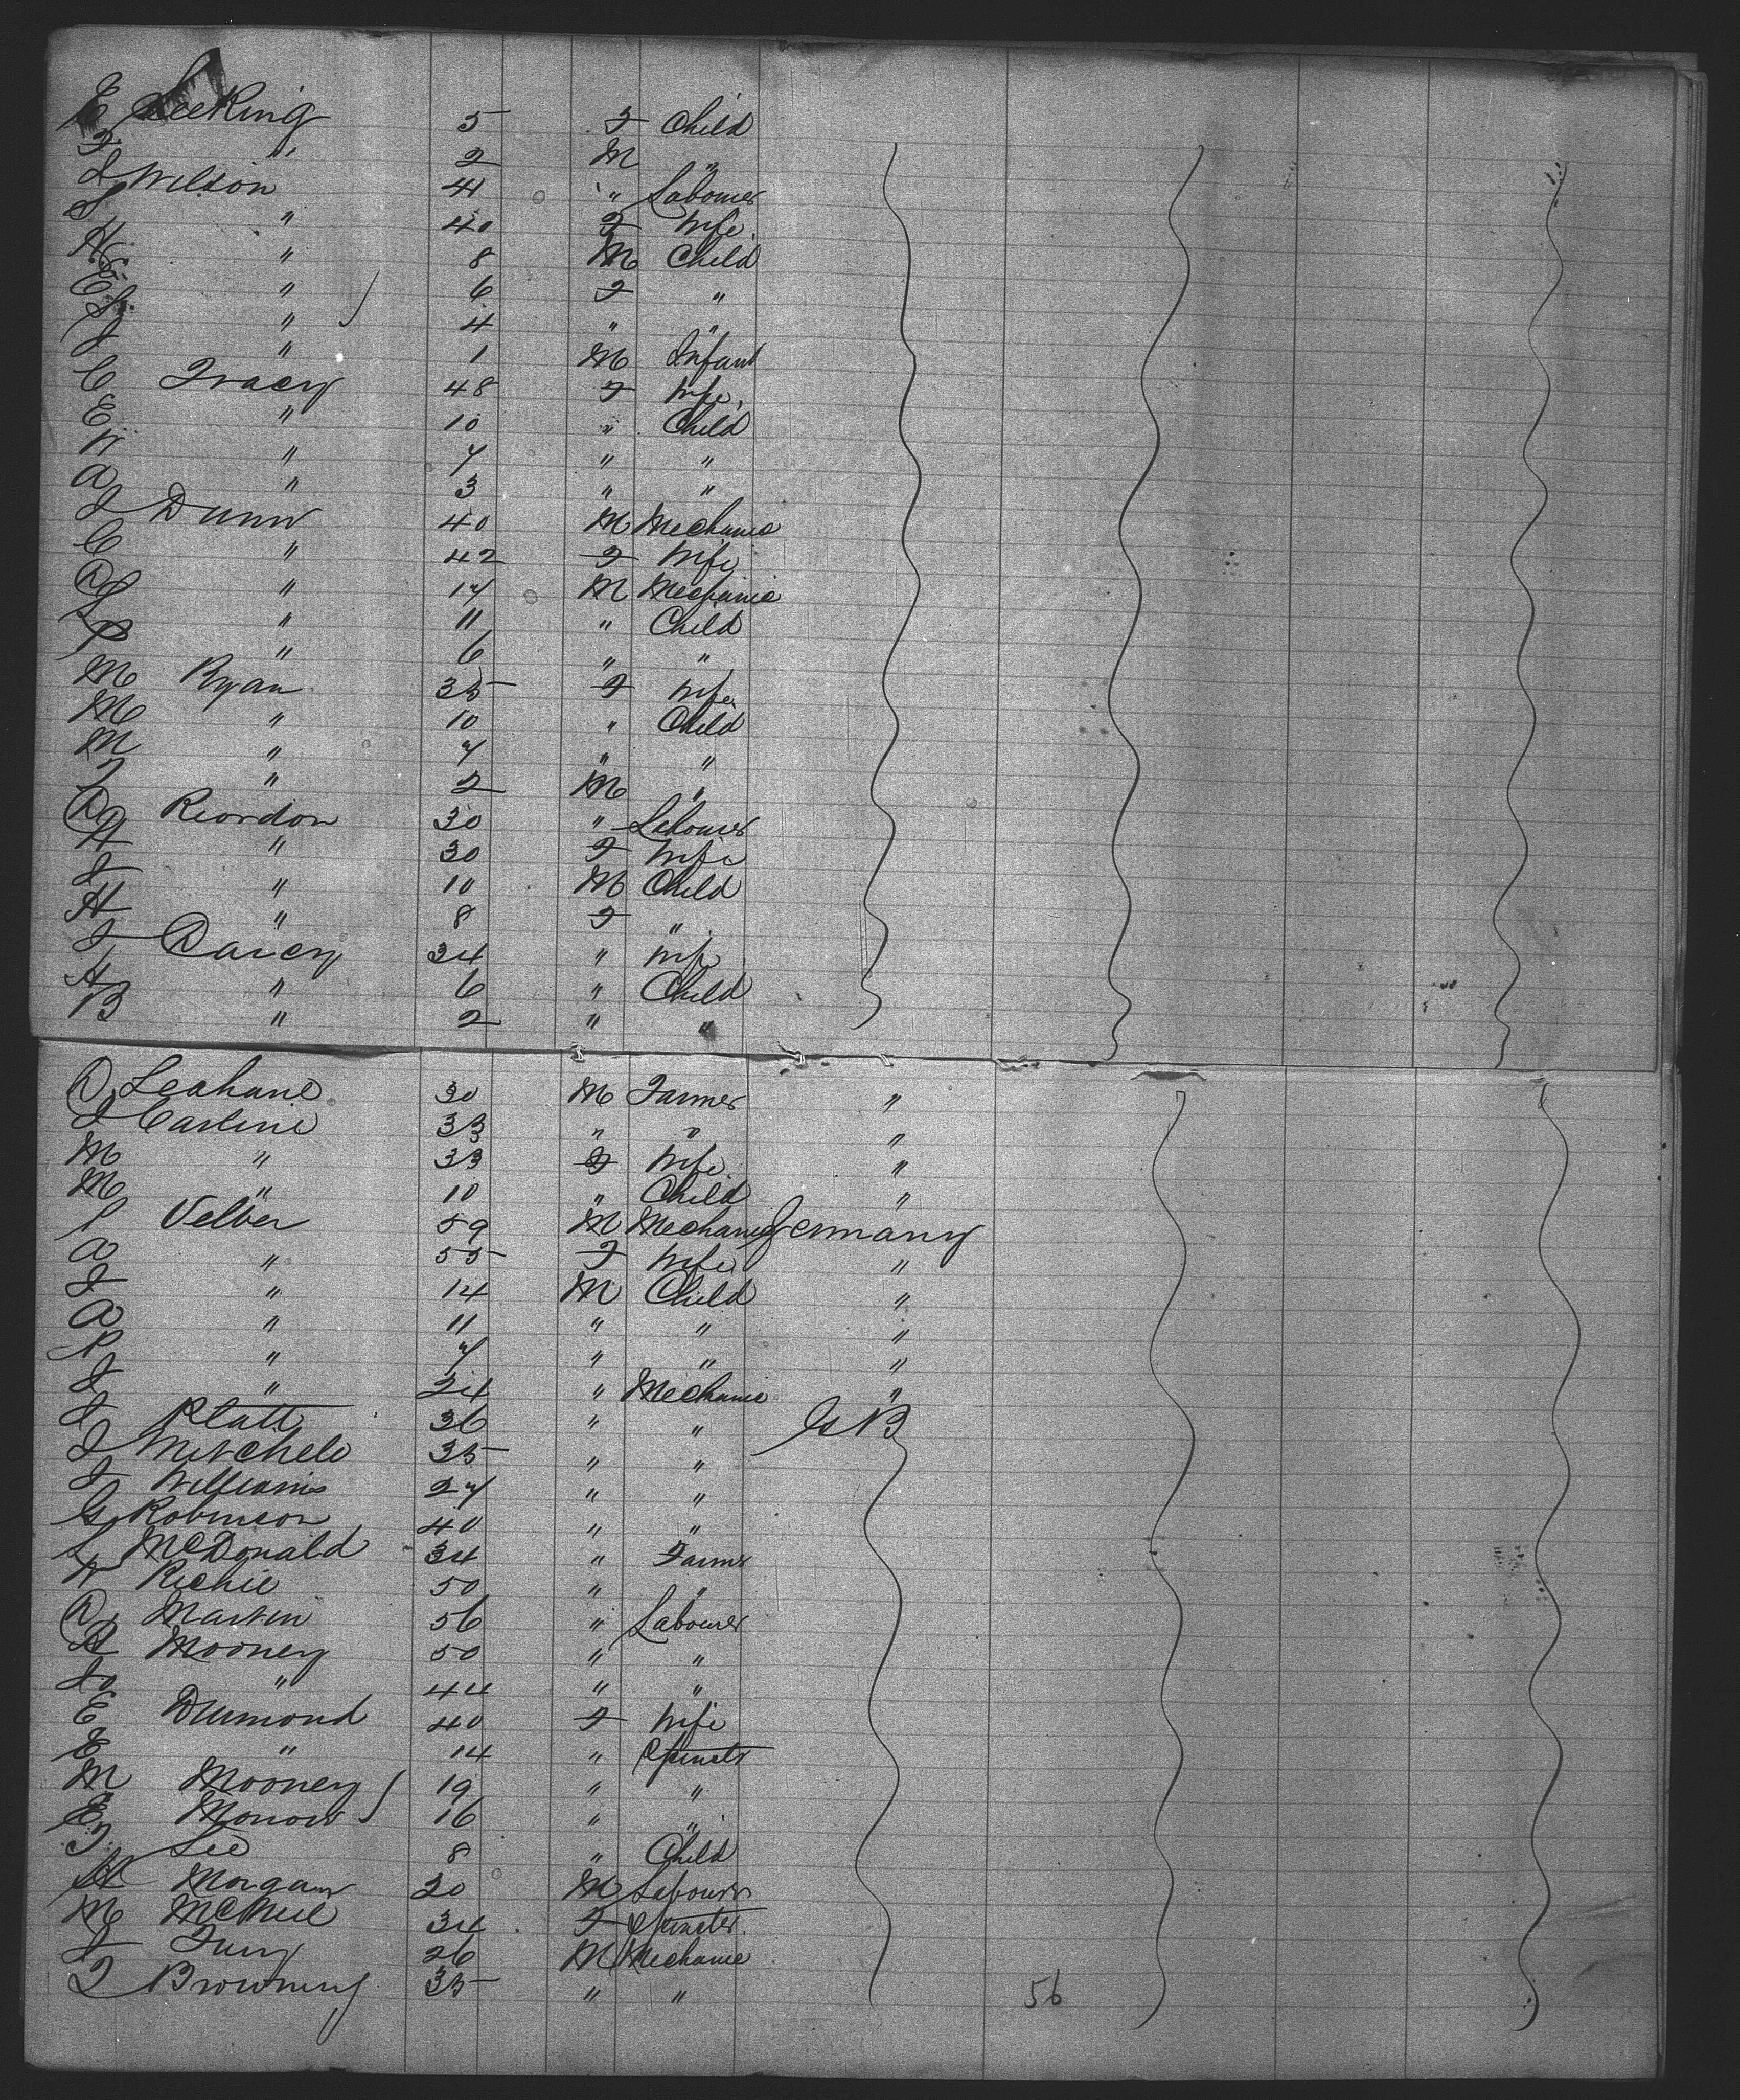 E Seeking 5 F Child
F " 2 M "
J Wilson 41 " Labourer
S " 40 F Wife
H " 8 M Child
E " 6 F "
S " 4 " "
J " 1 M Infant
C Tracy 48 F Wife
E " 10 " Child
W " 7 " "
A " 3 " "
J Dunn 40 M Mechanic
C " 42 F Wife
D " 17 M Mechanic
L " 11 " Child
P " 6 " "
M Ryan 35 F Wife
M " 10 " Child
M " 7 " "
T " 2 M "
D Reordon 30 " Labourer
H " 30 F Wife
J " 10 M Child
H " 8 F "
J Darcy 34 " Wife
A " 6 " Child
B " 2 " "
D Leahane 30 M Farmer "
J Carline 33 " " "
M " 33 F Wife "
M " 10 " Child "
P Velber 59 M Mechanic Germany
A " 55 F Wife "
J " 14 M Child "
A " 11 " " "
P " 7 " " "
J " 24 " Mechanic "
J Platt 36 " " G B
J Mitchell 35 " "
J Williams 27 " "
G Robinson 40 " "
S McDonald 34 " Farmr
W Richie 50 " "
D Martin 56 " Labourer
H Mooney 50 " "
Jo " 44 " "
E Drumond 40 F Wife
E " 14 " Spinstr
M Mooney 19 " "
E Monow 16 " "
F Lee 8 " Child
W Morgan 20 M Labourr
M McNeil 34 F Spinster
J Fury 26 M Mechanic
F Browning 35 " "
56